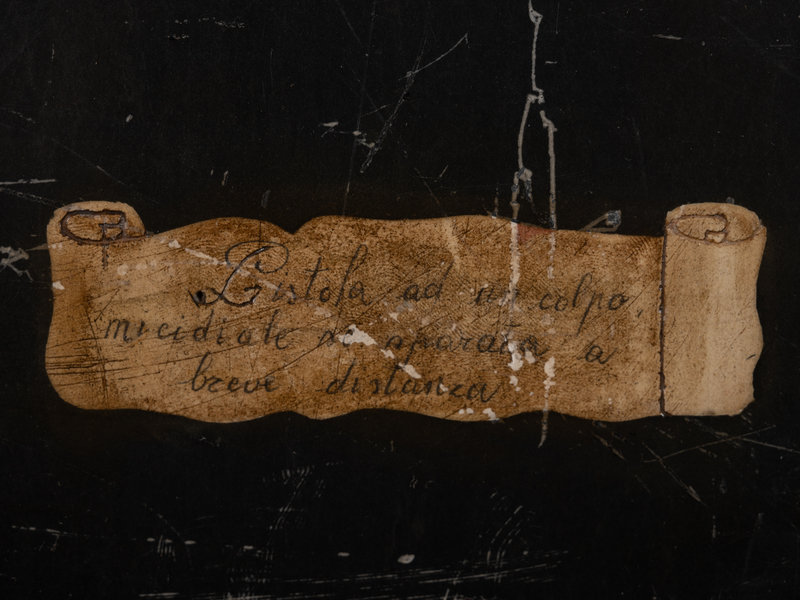 Pistola ad un colpo,
micidiale se sparata a
breve distanza